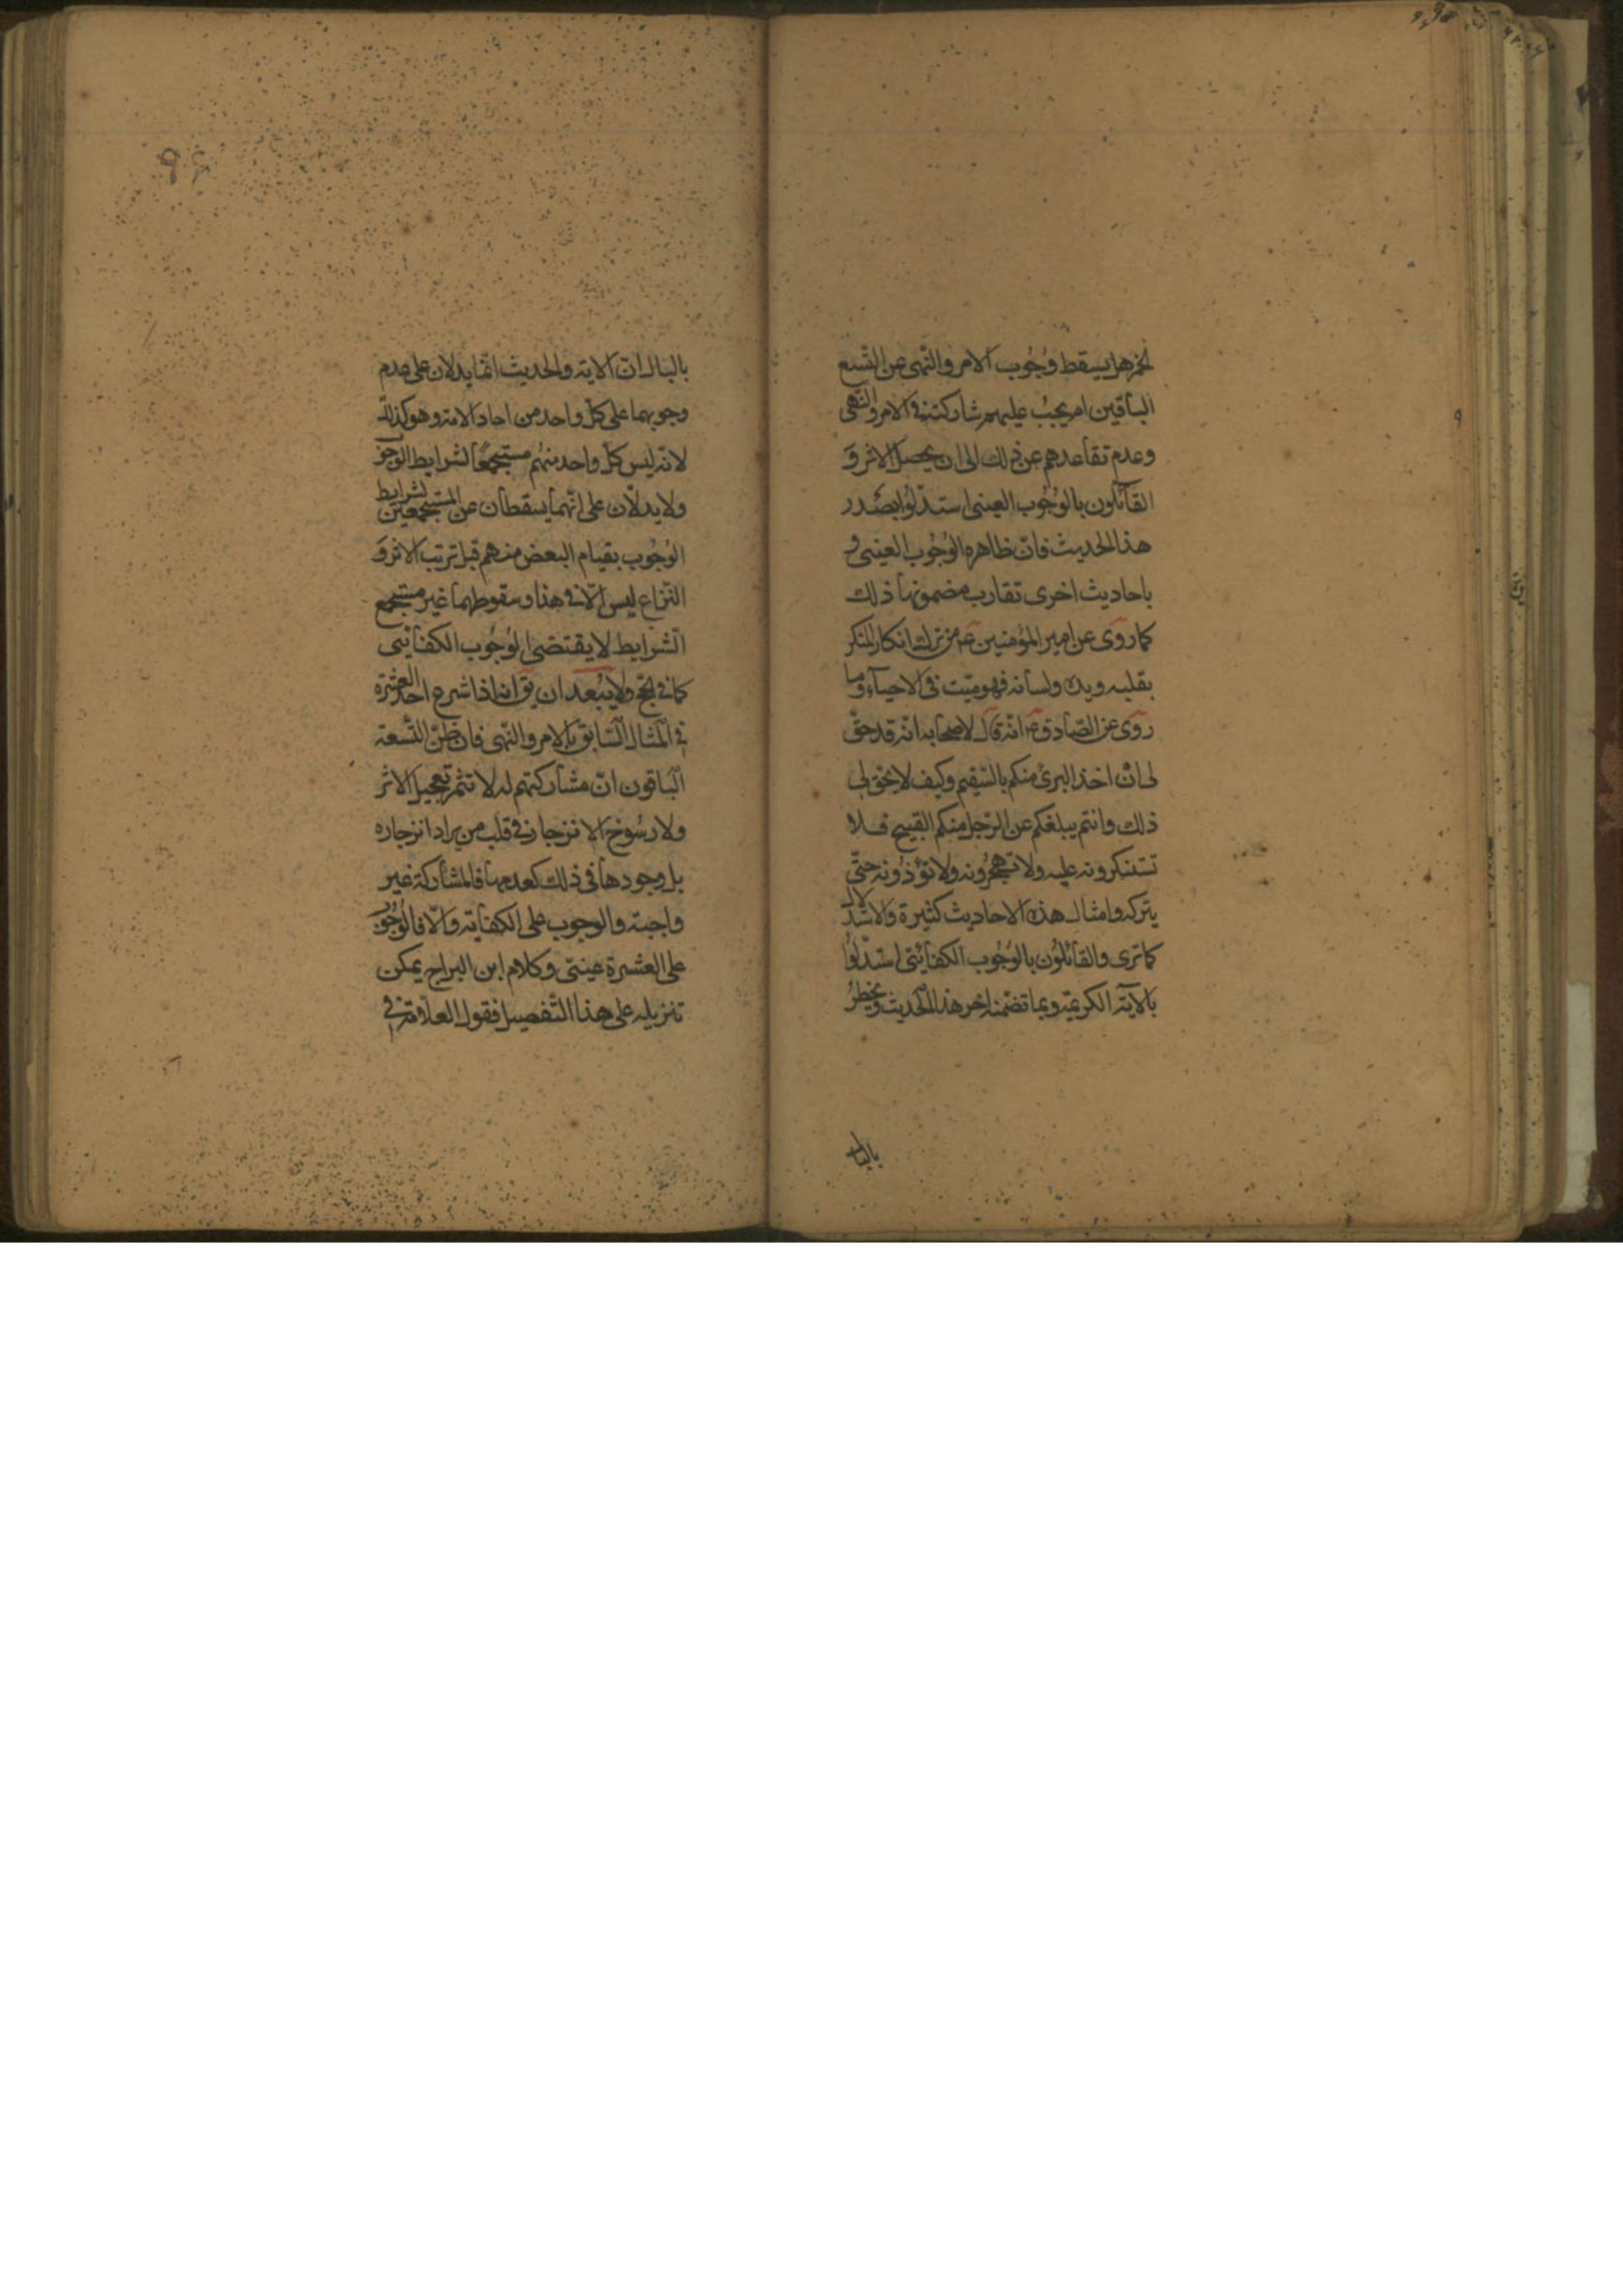 لخمر هل يسقط وُجُوب الامر والنّهى عن التّسع
الباقين ام يجبُ عليهم مشاركته فى الامر والنّهى
وعدم تقاعدهم عن ذلك الى ان يحصل الاثر وَ
القائلون بالوُجُوب العينى استدلّوا بصَدر
هذا الحديث فانّ ظاهره الوُجُوب العينى و
باحاديث اخرى تقارب مضمونها ذلك
كما روى عن امير المؤمنين ع من ترك انكار المنكر
بقلبه ويده ولسانه فهو ميّت فى الاحياء وما
روى عن الصّادق ع انّه قال لاصحابه انّه قد حقّ
لى انْ اخذ البرئ منكم بالسّقيم وكيف لا يحق لى
ذلك وانتم يبلغكم عن الرّجل منكم القبيح فلا
تستنكرونه عليه ولا تهجُرونه ولا تؤذُونه حتّى
يتركه وامثال هذه الاحاديث كثيرة والاستدلال
كما ترى والقائلُون بالوُجُوب الكفائىّ استدّلوُا
بالآية الكريمة وبما تضمّنه اخر هذا الحديث ويخطرُ
بالبال
بالبال انّ الاية والحديث انّما يدلان على عدم
وجوبهما على كلّ واحد من احاد الامة وهو كذلك
لانّه ليس كلّ واحد منهُم مستجمعًا لشرايط الوجوب
ولا يدلّان على انّهما يسقطان عن المستجمعين لشرايط
الوُجُوب بقيام البعض منهم قبل ترتب الاثر وَ
النّزاع ليس الّا فى هذا وسقوطهما غير مستجمع
الشّرايط لا يقتضى الوُجُوب الكفائىّ
كما فى الحجّ ولا يبْعد ان يق انه اذا شرع احد العشرة
فى المثال السّابق بالامر والنّهى فان ظنّ التّسعة
الباقون انّ مشاركتهم له لا تثمر تعجيل الاثر
ولا رسُوخ الانزجار فى قلب من يراد انزجاره
بل وجودها فى ذلك كعدمها فالمشاركة غير
واجبة والوجوب على الكفاية والّا فالوُجُوب
على العشرة عينىّ وكلام ابن البراج يمكن
تنزيله على هذا التّفصيل فقول العلّامة فى